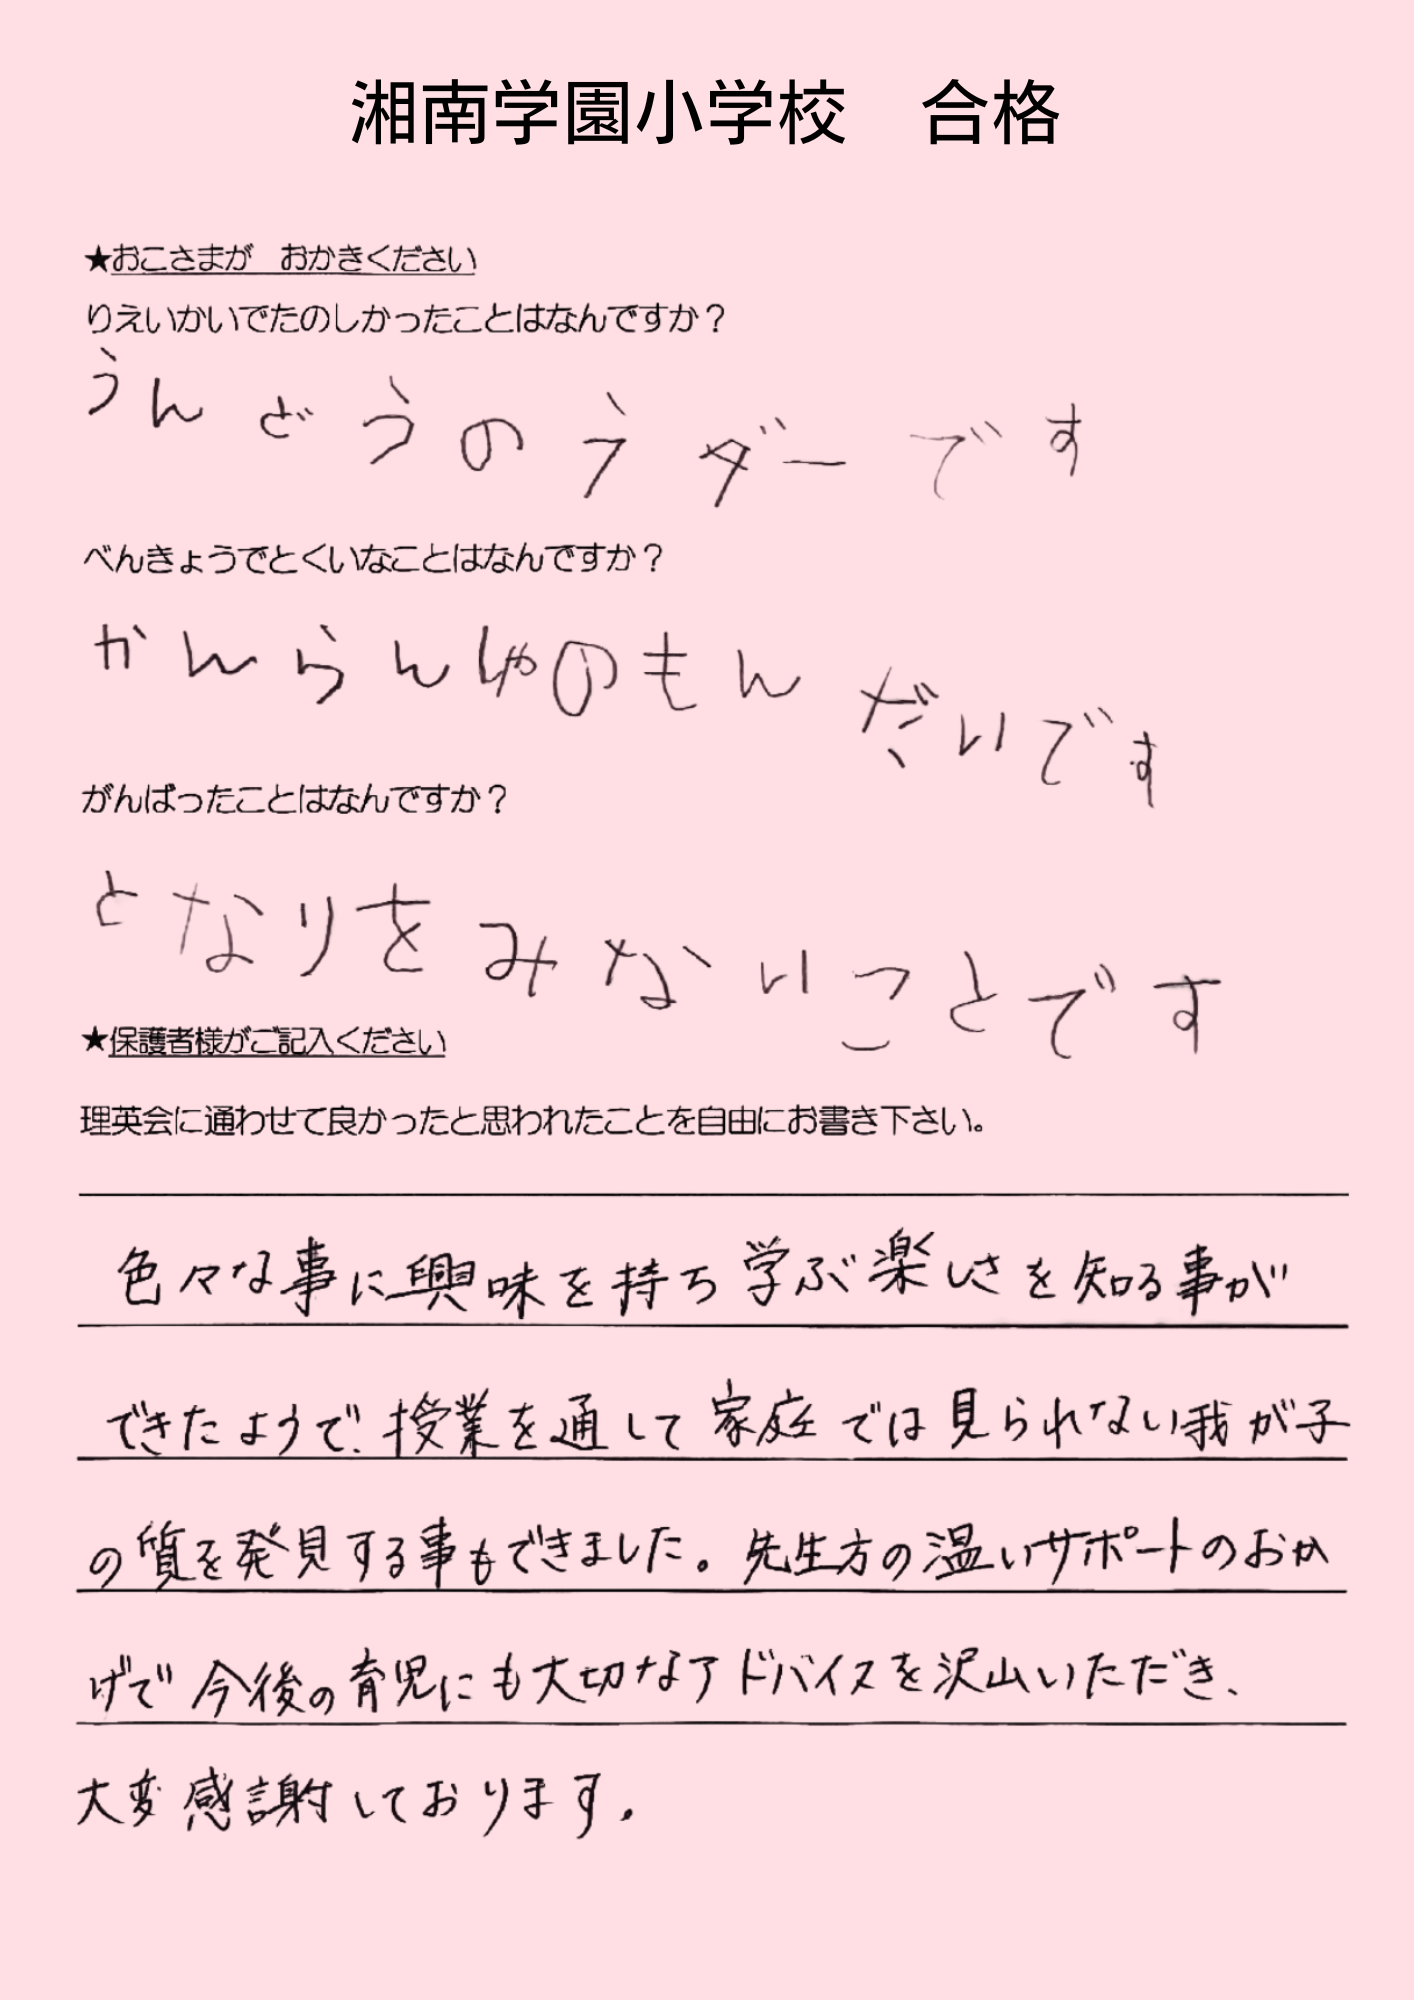 湘南学園小学校　合格
★おこさまが　おかきください
りえいかいでたのしかったことはなんですか？
うんどうのラダーです
べんきょうでとくいなことはなんですか？
かんらんしゃのもんだいです
がんばったことはなんですか？
となりをみないことです
★保護者様がご記入ください
理英会に通わせて良かったと思われたことを自由にお書き下さい。
色々な事に興味を持ち学ぶ楽しさを知る事が
できたようで、授業を通して家庭では見られない我が子
の質を発見する事もできました。先生方の温いサポートのおか
げで今後の育児にも大切なアドバイスを沢山いただき、
大変感謝しております。